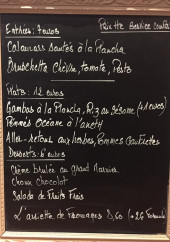 Entrées: 7 euros
Prix Ttc Service Compris
Calamars sautés à la Plancha
Bruschetta Chèvre, tomate, Pesto
Plats: 12 euros
Gambas à la Plancha, Riz au Sésame (+1 euros)
Pennes Océane à l'aneth
Aller-retour aux herbes, Pommes Gaufrettes
Desserts: 6 euros
Crème brulée au grand Marnier
Choux chocolat
Salade de Fruits Frais
L'assiette de fromages 8,60 (+2€ Formule)